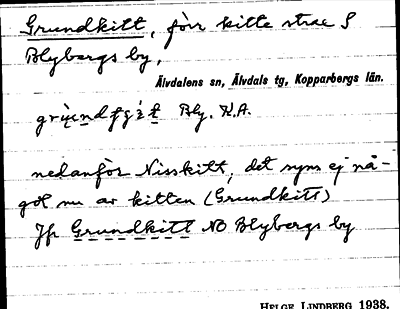 Grundkitt, förr kitte strax S
Blybergs by,
Älvdalens sn, Älvdals tg, Kopparbergs län.
Bly. K.A.
nedanför Nisskitt, det syns ej nå-
got nu av kitten (Grundkitt)
Jfr Grundkitt NO Blybergs by
HELGE LINDBERG 1938.